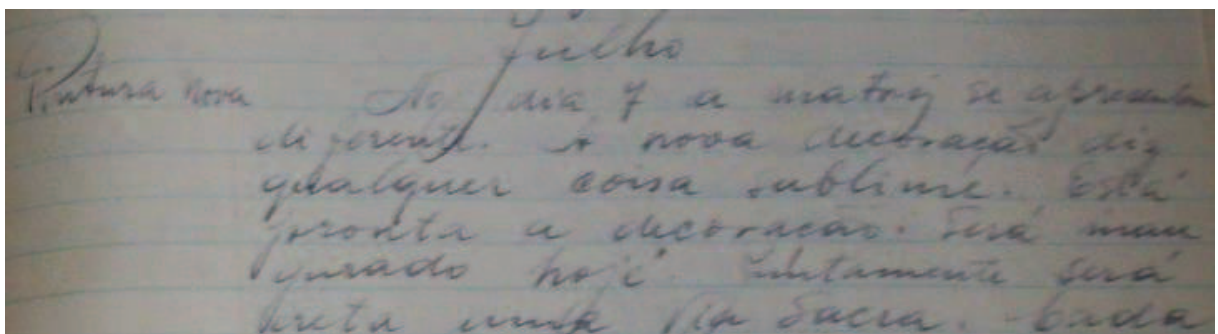 Julho
Pintura nova No dia 7 a matriz se apresenta
diferente. A nova decoração diz
qualquer coisa sublime. Está
pronta a decoração. Será inau
gurado hoje. Juntamente será
feita uma Via Sacra. Cada